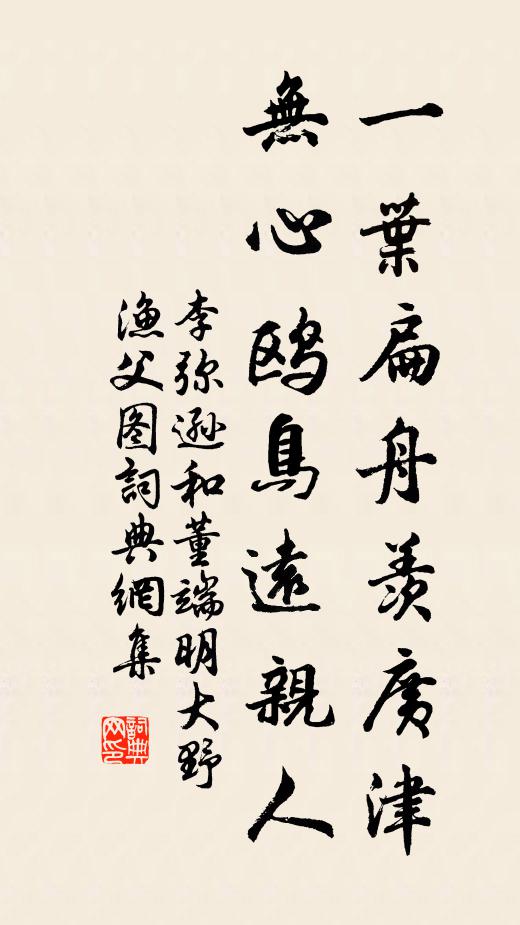 一葉扁舟羨廣津
無心鷗鳥遠親人
李弥遜和董端明大野
漁父图詞典網集
詞典网印